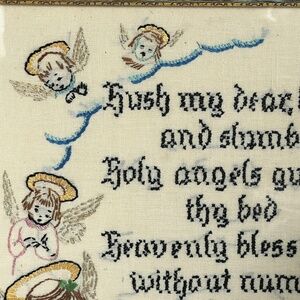 Hush my dear,
and slumb
Holy angels gu
thy bed
Heavenly bless
without num